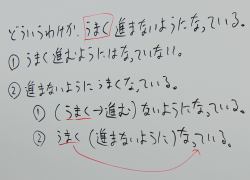 どういうわけか、うまく進まないようになっている。
① うまく進むようにはなっていない。
② 進まないようにうまくなっている。
① (うまく→進む)ないようになっている。
② うまく(進まないように)なっている。